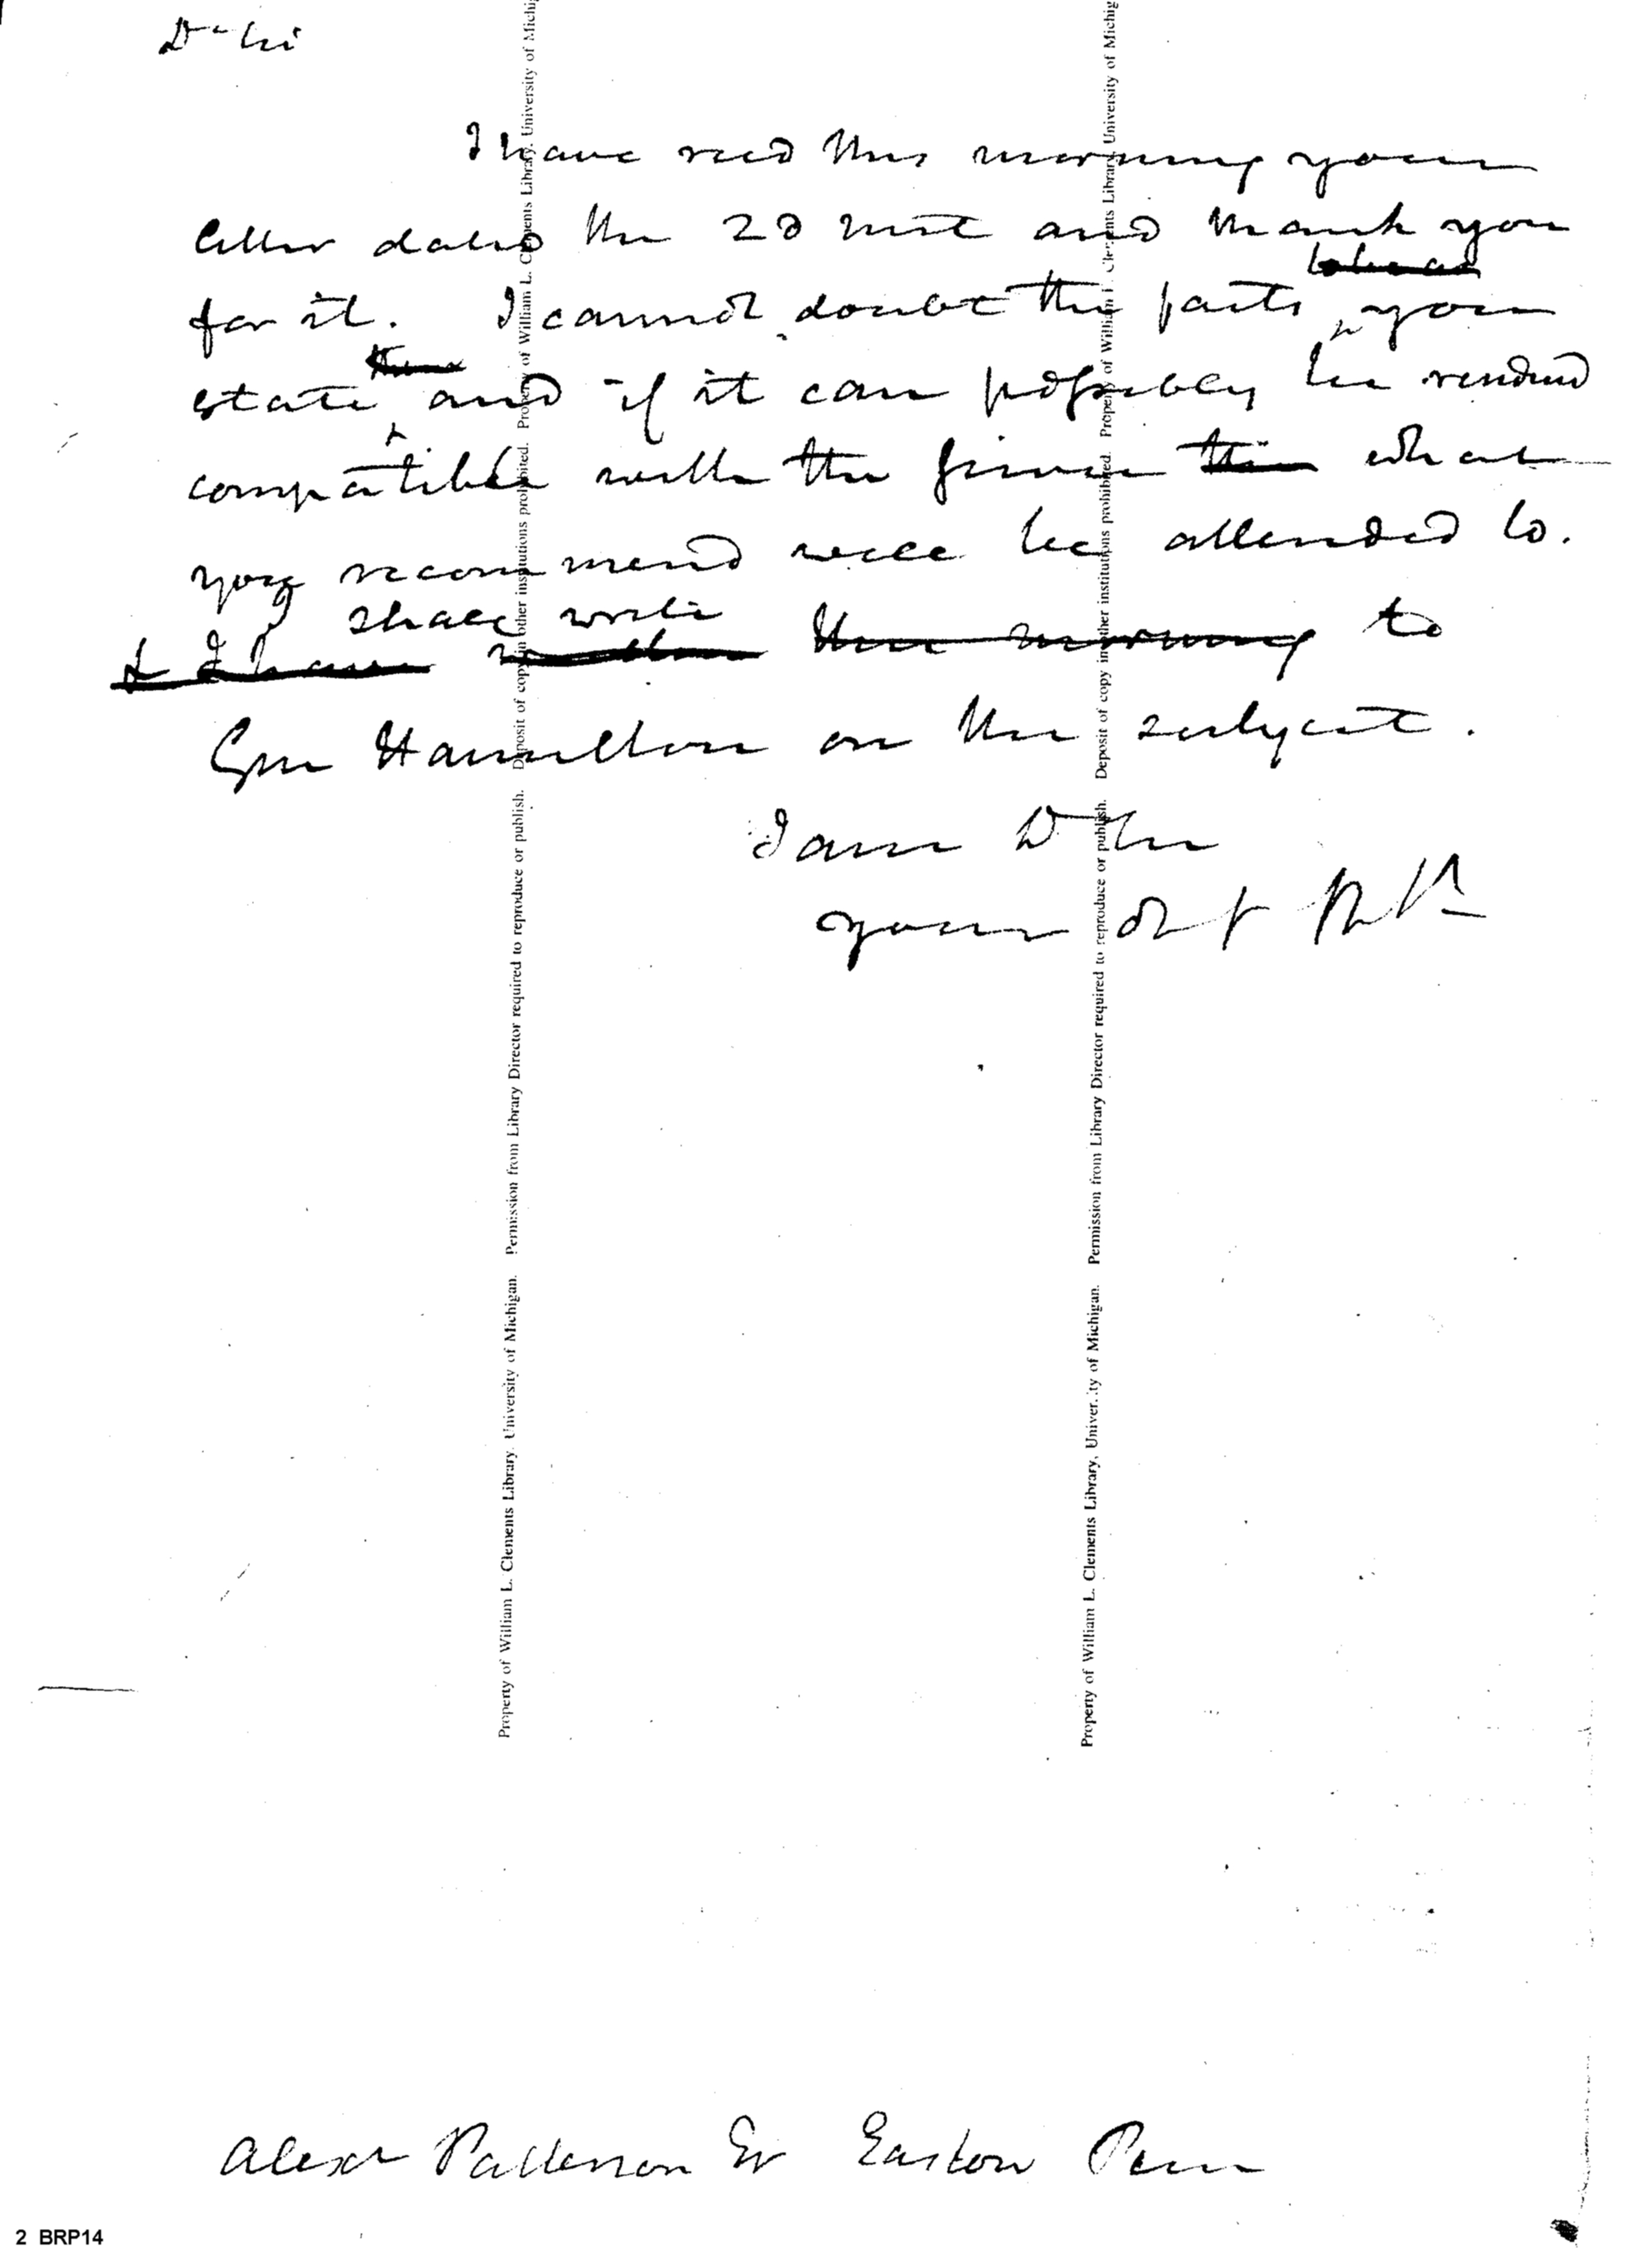 Dr Sir
I have recd this morning your
letter dated the 2d inst and thank you
to be as
for it. I cannot doubt the facts you
state and if it can possibly be rendered
compatible with the what
you recommend will be attended to.
I shall write
& I have written this morning to
Gen Hamilton on the subject.
I am Dr Sir
your
Alexr Patterson Er Easton Penn
2 BRP14
Property of William L. Clements Library, University of Michigan. Permission from Library Director required to reproduce or publish. Deposit of copy in other institutions prohibited. Property of William L. Clements Library, University of Michig
Property of William L. Clements Library, University of Michigan. Permission from Library Director required to reproduce or publish. Deposit of copy in other institutions prohibited. Property of William L. Clements Library, University of Michig